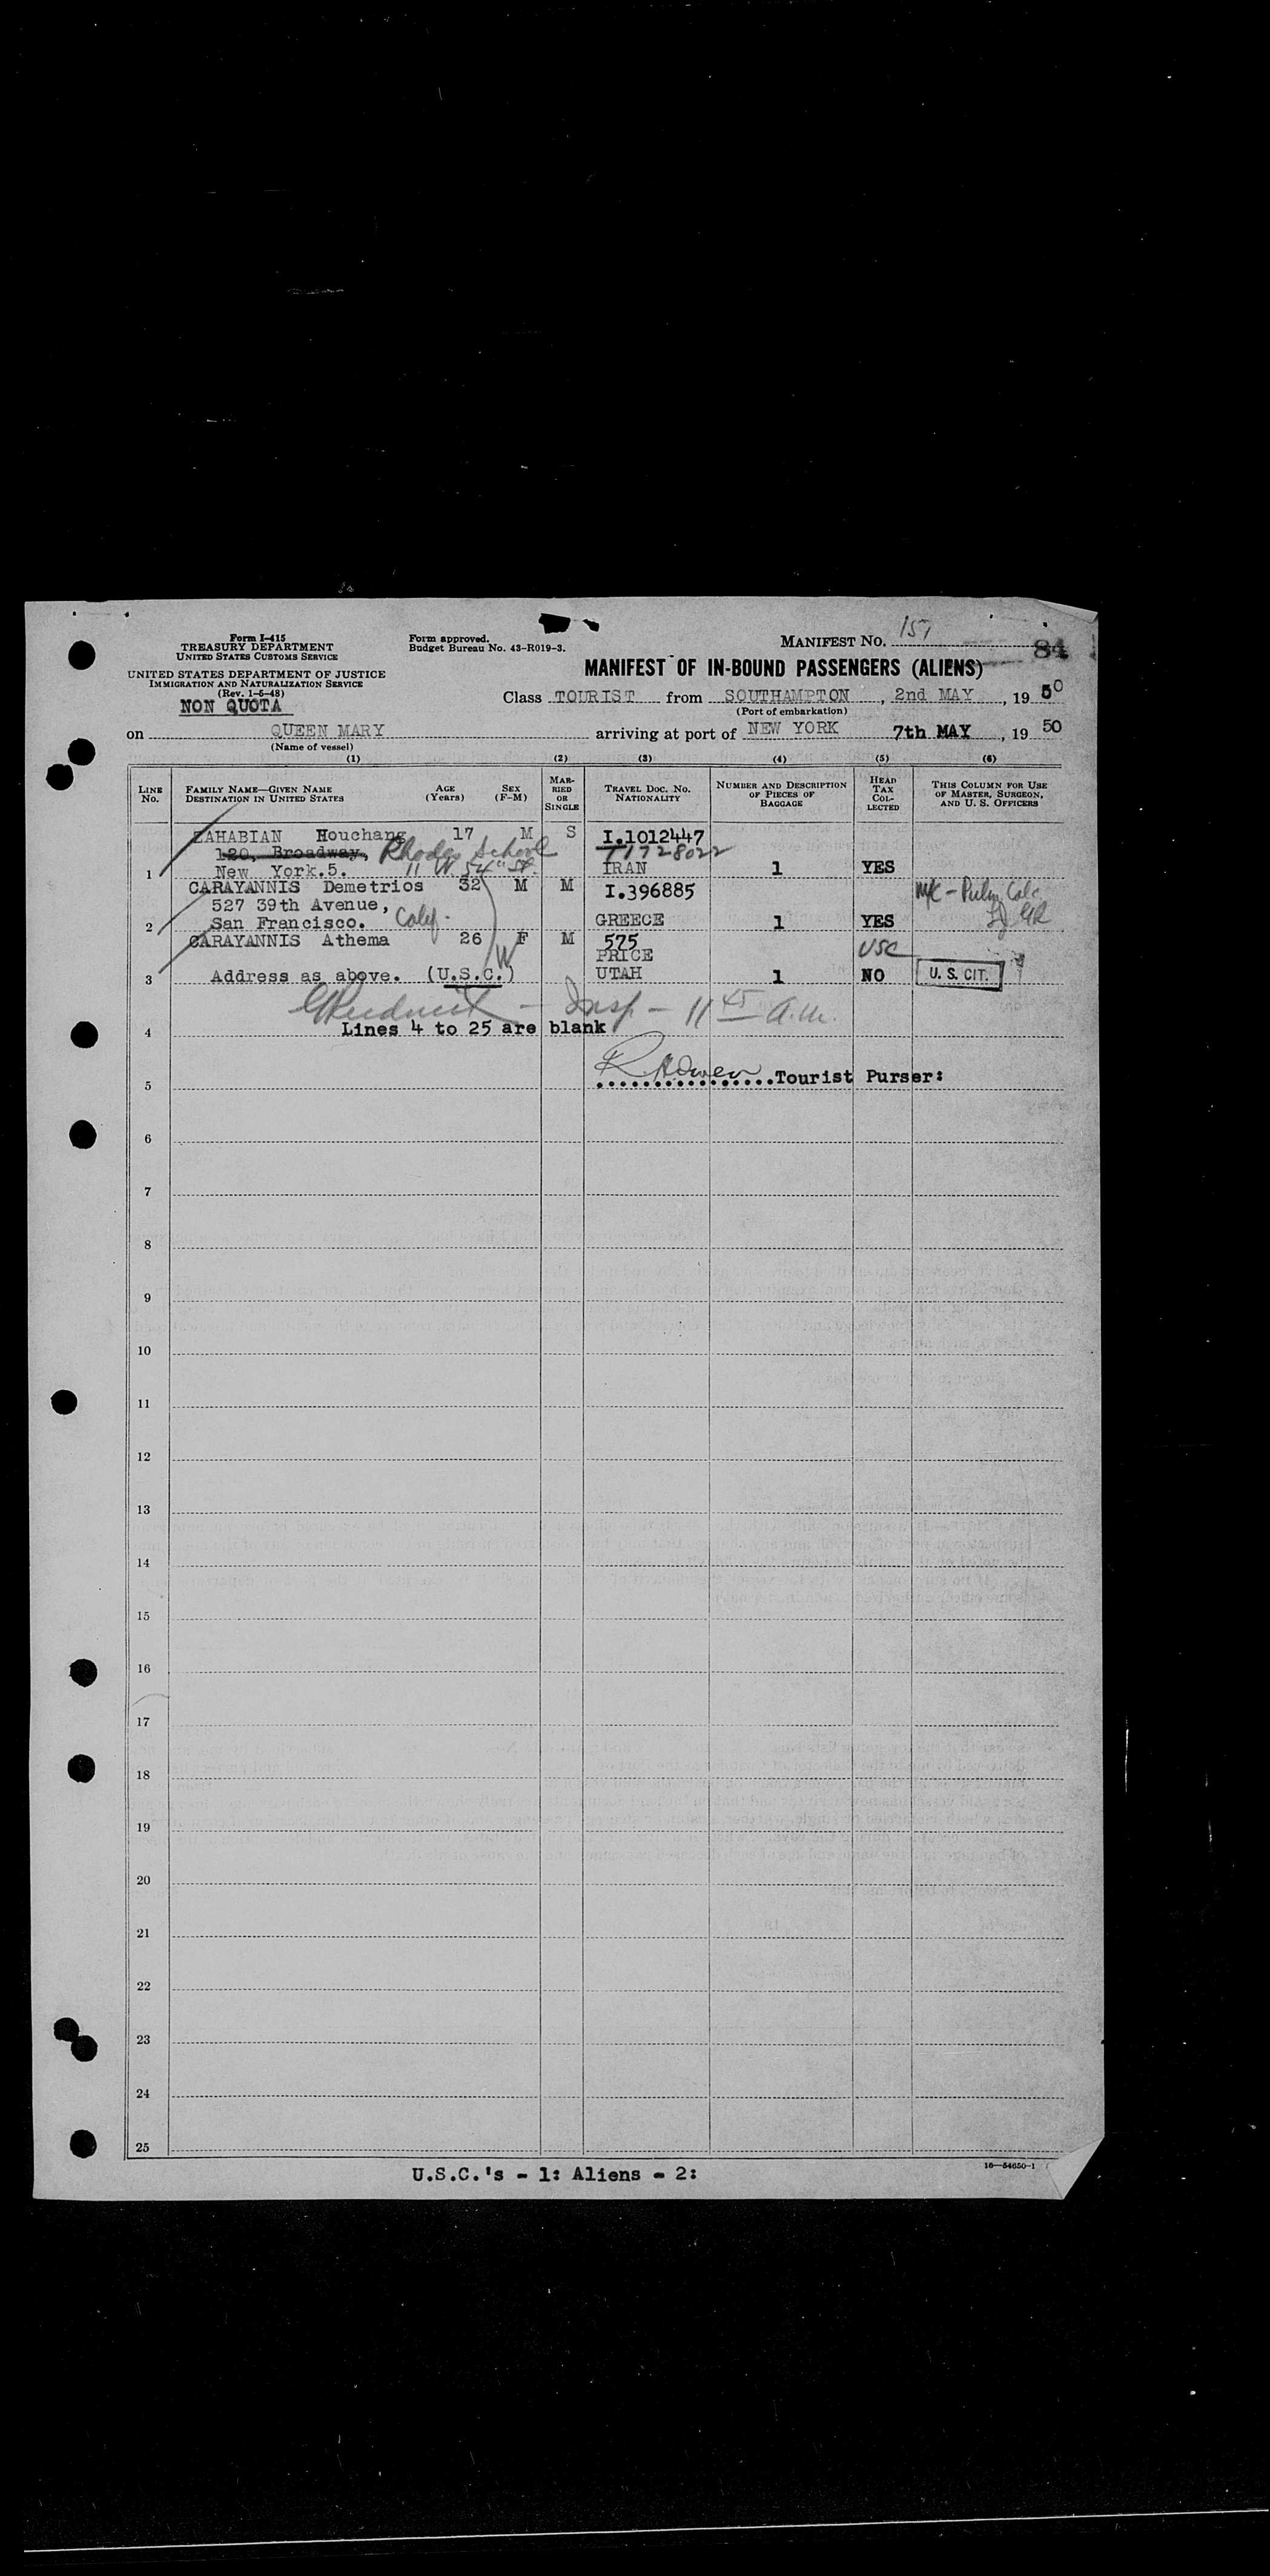 Form I-415
TREASURY DEPARTMENT
UNITED STATES CUSTOMS SERVICE
UNITED STATES DEPARTMENT OF JUSTICE
IMMIGRATION AND NATURALIZATION SERVICE
(Rev. 1-6-48)
NON QUOTA
Form approved.
Budget Bureau No. 43-R019-3.
MANIFEST NO. 151
84
MANIFEST OF IN-BOUND PASSENGERS (ALIENS)
Class TOURIST from SOUTHAMPTON, 2nd MAY, 1950
(Port of embarkation)
on QUEEN MARY arriving at port of NEW YORK 7th MAY, 1950
(Name of vessel)
(1) (2) (3) (4) (5) (6)
LINE No. FAMILY NAME—GIVEN NAME DESTINATION IN UNITED STATES AGE (Years) SEX (F-M) MARRIED OR SINGLE TRAVEL DOC. NO. NATIONALITY NUMBER AND DESCRIPTION OF PIECES OF BAGGAGE HEAD TAX COLLECTED THIS COLUMN FOR USE OF MASTER, SURGEON, AND U. S. OFFICERS
ZAHABIAN Houchang 17 M S I.1012447
120, Broadway, Rhodes School T1728022
1 New York.5. 11 W. 54th St. IRAN 1 YES
CARAYANNIS Demetrios 32 M M I.396885
527 39th Avenue,
2 San Francisco. Calif. GREECE 1 YES
CARAYANNIS Athema 26 F M 575 USC
PRICE
3 Address as above. (U.S.C.) W UTAH 1 NO U. S. CIT.
Insp - 11 45 a.m.
4 Lines 4 to 25 are blank
5 Tourist Purser:
6
7
8
9
10
11
12
13
14
15
16
17
18
19
20
21
22
23
24
25
16—54650-1
U.S.C.'s - 1: Aliens - 2: